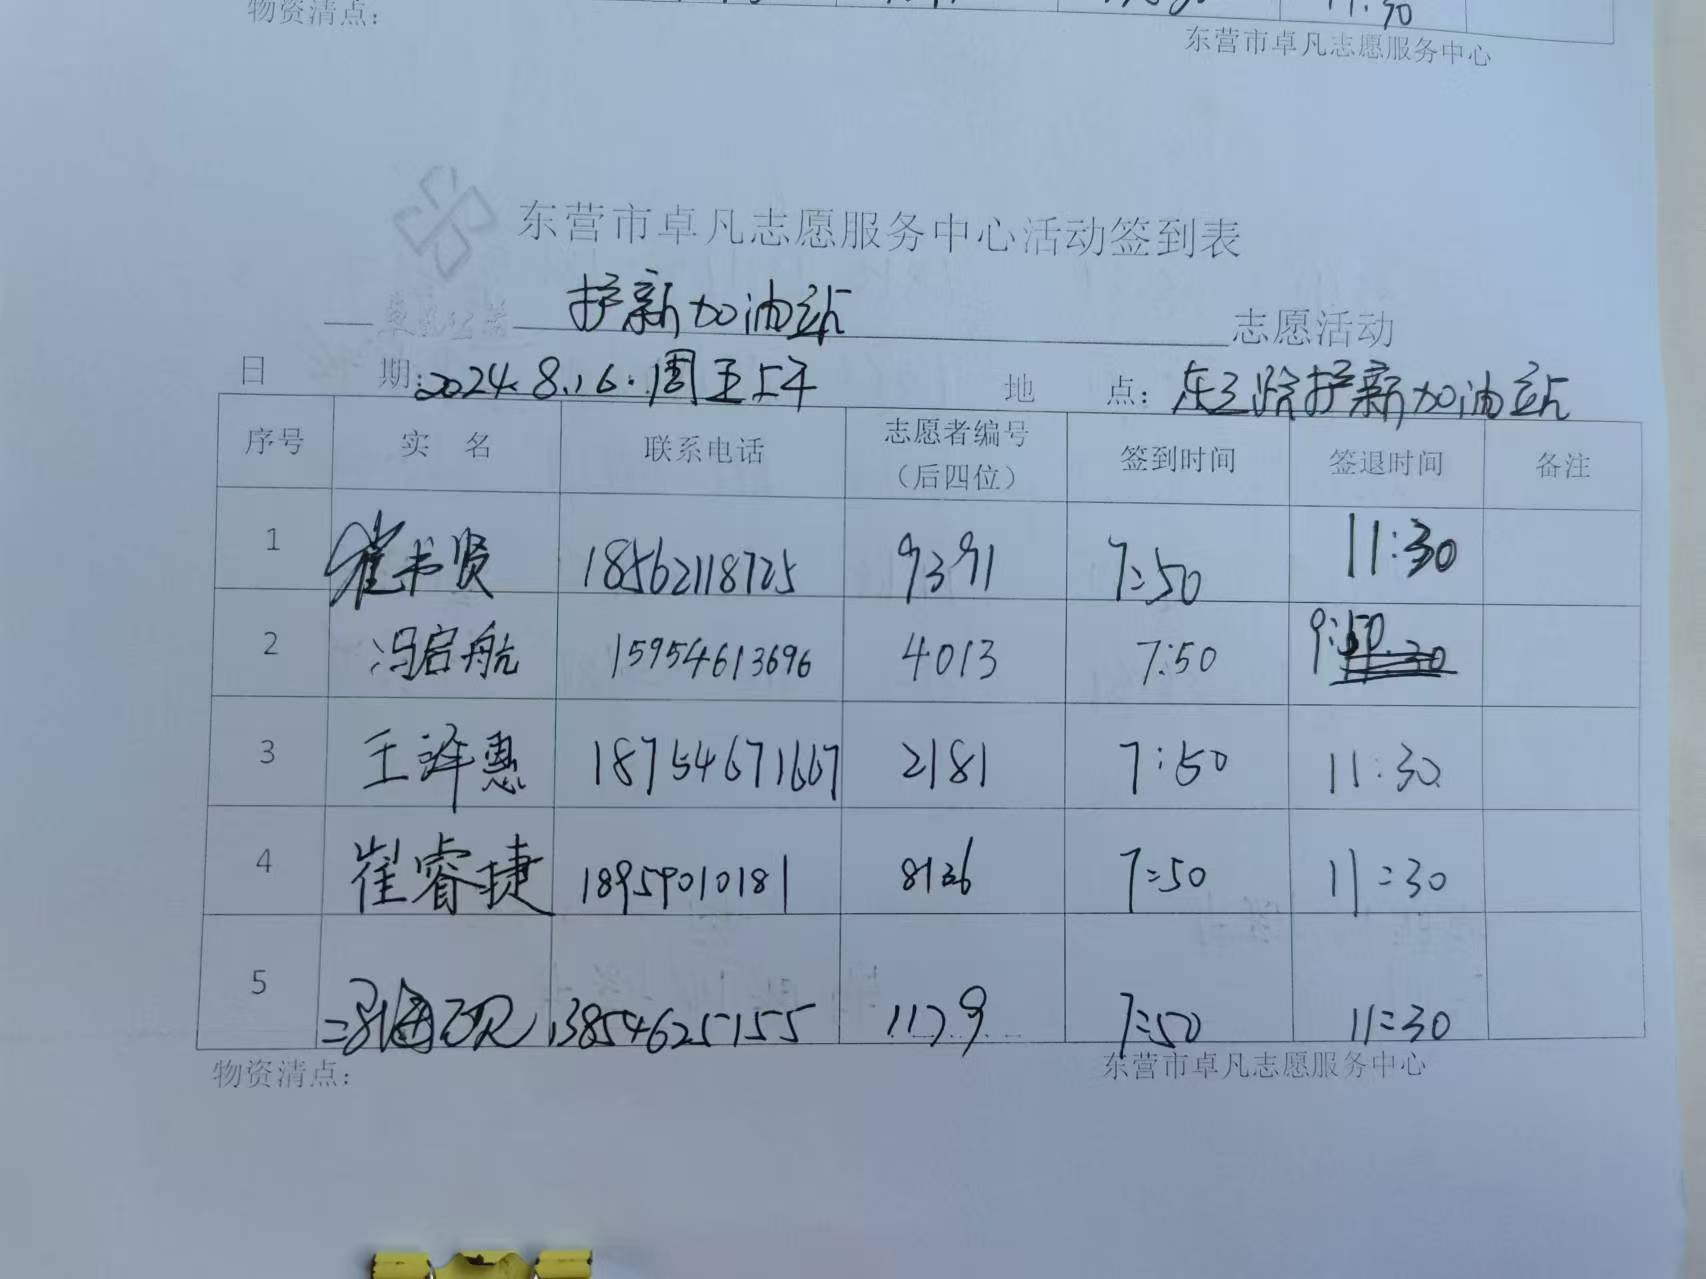 物资清点:
11:30
东营市卓凡志愿服务中心
东营市卓凡志愿服务中心活动签到表
护新加油站 志愿活动
日 期:2024.8.16.周五上午 地 点:东三路护新加油站
序号 实 名 联系电话 志愿者编号(后四位) 签到时间 签退时间 备注
1 崔书贤 18562118725 9391 7:50 11:30
2 冯启航 15954613696 4013 7:50 9:50
3 王译惠 18754671667 2181 7:50 11:30
4 崔睿捷 18959010181 8136 7:50 11:30
5 13854625155 1179 7:50 11:30
物资清点:
东营市卓凡志愿服务中心